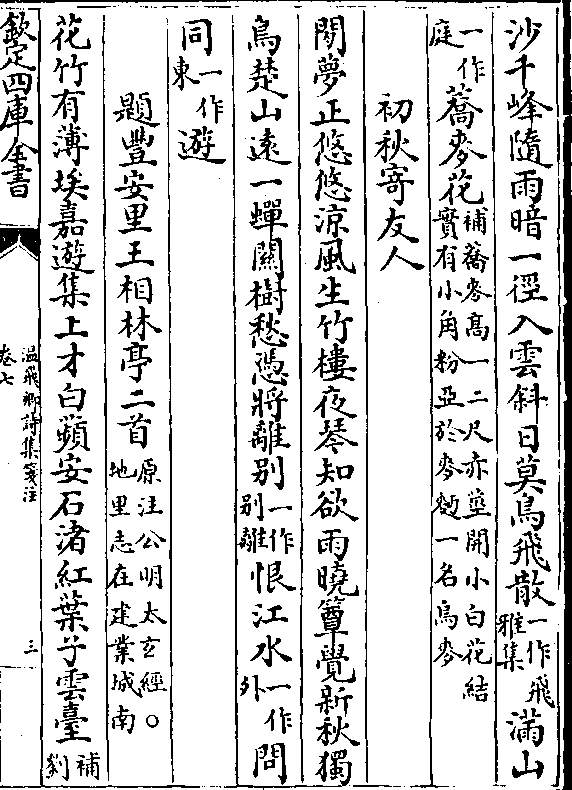 沙千峰隨雨暗一徑入雲斜日莫鳥飛散一作飛雅集滿山
一作庭蕎麥花補蕎麥高一二尺赤莖開小白花結實有小角粉亞於麥麪一名烏麥
初秋寄友人
閒夢正悠悠涼風生竹樓夜琴知欲雨曉簟覺新秋獨
鳥楚山遠一蟬關樹愁憑將離别一作别離恨江水一作外問
同一作東遊
題豐安里王相林亭二首原注公明太玄經○地里志在建業城南
花竹有薄埃嘉遊集上才白蘋安石渚紅葉子雲臺補劉
欽定四庫全書
温飛卿詩集箋注
卷七
三